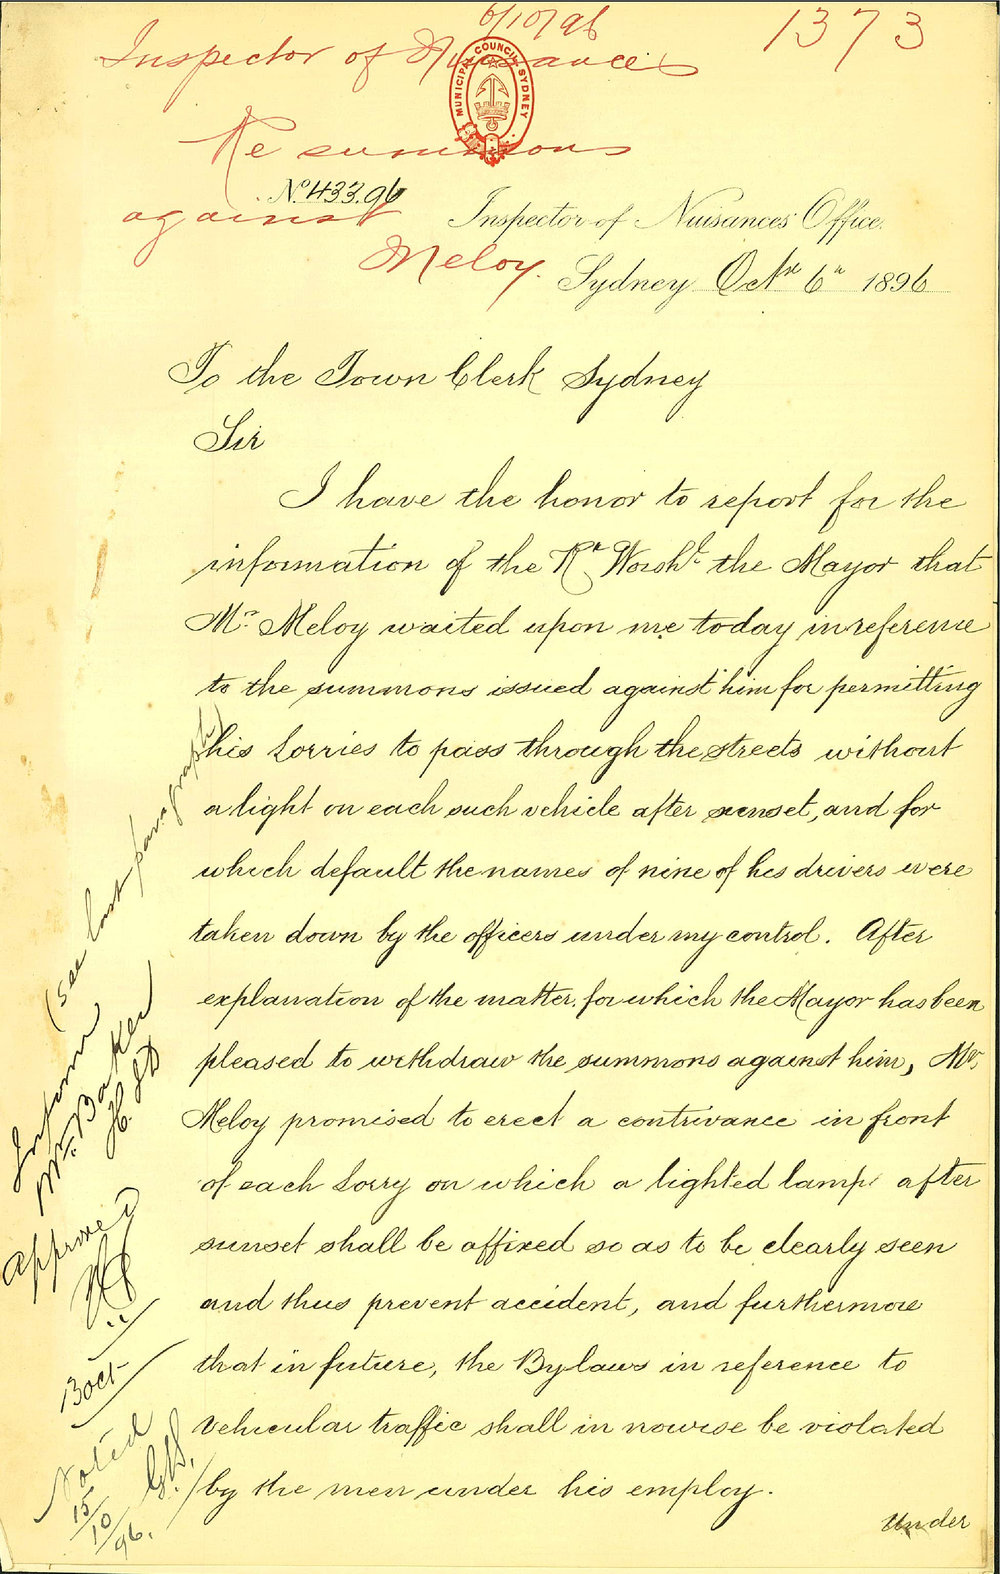 6/10/96
1373
Inspector of Nuisances
MUNICIPAL COUNCIL SYDNEY
Re summons
No. 433.96
against
Meloy.
Inspector of Nuisances Office.
Sydney Octr 6th 1896
To the Town Clerk Sydney
Sir
I have the honor to report for the
information of the Rt Worshl the Mayor that
Mr Meloy waited upon me today in reference
to the summons issued against him for permitting
his Lorries to pass through the streets without
a light on each such vehicle after sunset, and for
which default the names of nine of his drivers were
taken down by the officers under my control. After
explanation of the matter, for which the Mayor has been
pleased to withdraw the summons against him, Mr.
Meloy promised to erect a contrivance in front
of each Lorry on which a lighted lamp after
sunset shall be affixed so as to be clearly seen
and thus prevent accident, and furthermore
that in future, the Bylaws in reference to
Vehicular traffic shall in nowise be violated
by the men under his employ.
Under
(See last paragraph)
Inform
Mr. Baker
Approved
13 Oct
Noted
15/10/96.